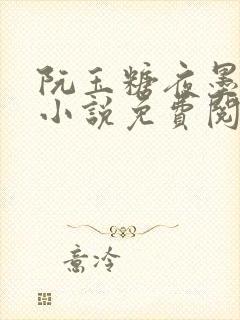 阮玉糖夜墨
小說免費閱
意冷